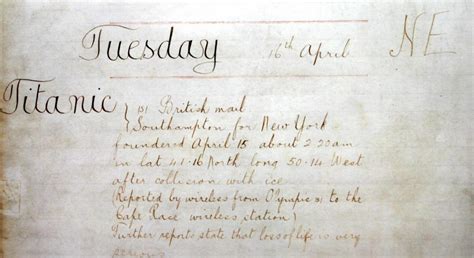 Tuesday 16th April NE
Titanic } British mail
Southampton for New York
foundered April 15 about 2.20am
in lat 41.16 North long 50.14 West
after collision with ice
(Reported by wireless from Olympic to the
Cape Race wireless station)
Further reports state that loss of life is very
serious